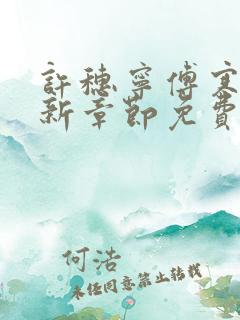 許穗寧傅寒
新章節免費
何浩
未经同意禁止转载